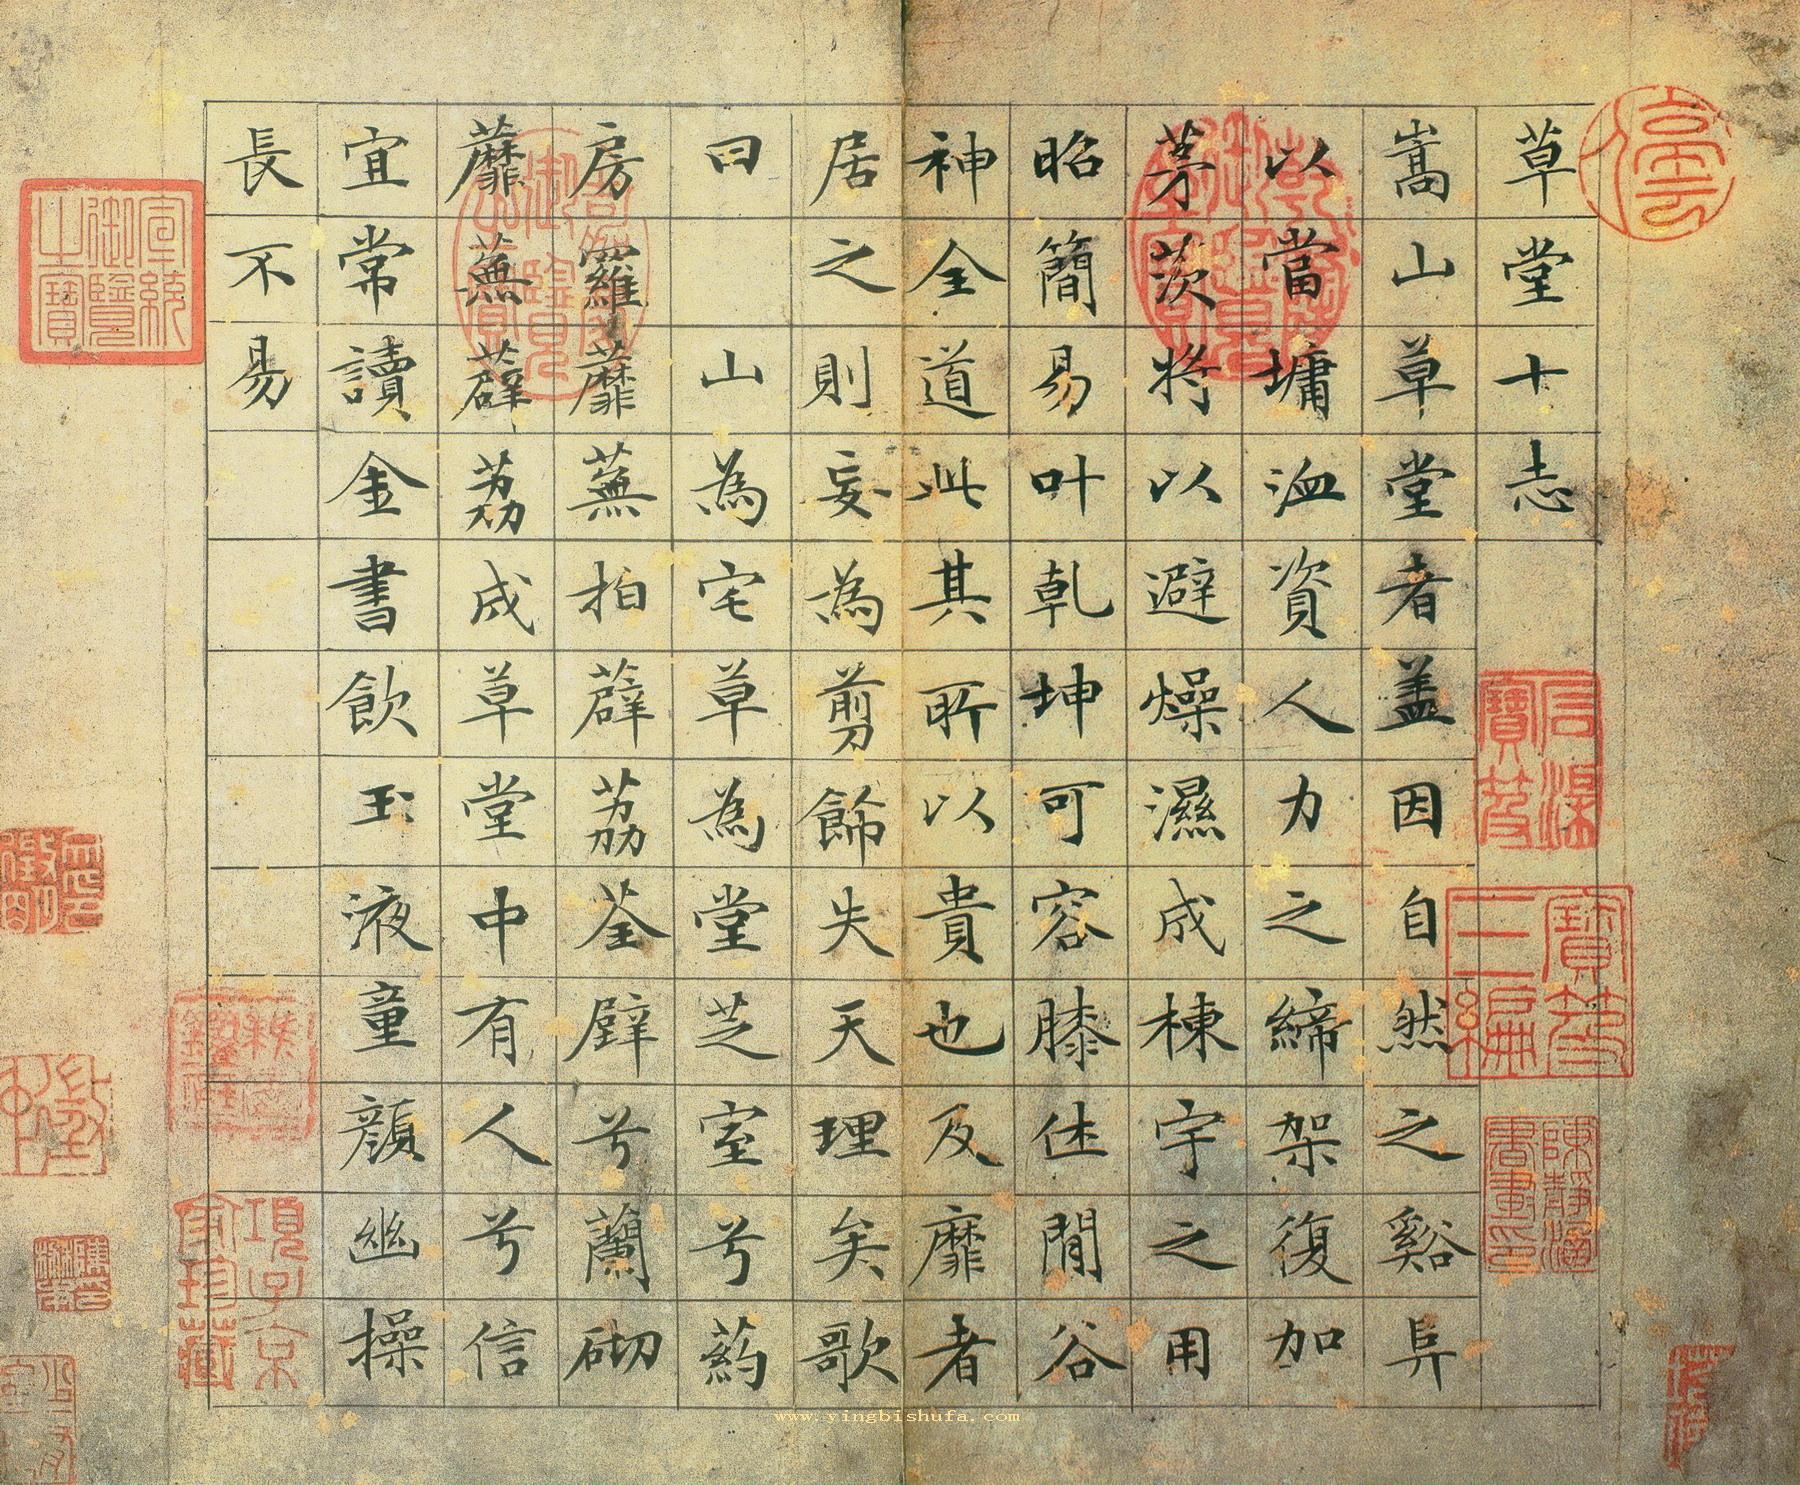 草堂十志
嵩山草堂者盖因自然之谿阜
以當墉洫資人力之締架復加
茅茨将以避燥濕成棟宇之用
昭簡易叶乾坤可容膝休閒谷
神全道此其所以貴也及靡者
居之則妄為剪餙失天理矣歌
曰 山為宅草為堂芝室兮葯
房羅蘼蕪拍薜荔荃壁兮蘭砌
蘼蕪薜荔成草堂中有人兮信
宜常讀金書飲玉液童顏幽操
長不易
石渠寶笈
寶笈三編
宣統御覽之寶
項子京家珍藏
www.yingbishufa.com